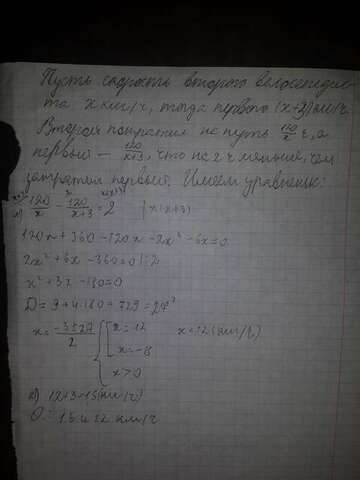 Пусть скорость второго велосипедис
та x км/ч, тогда первого (x+3) км/ч.
Второй потратил на путь 120/x ч, а
первый — 120/x+3, что на 2 ч меньше, чем
затратил первый. Имеем уравнение:
120/x - 120/x+3 = 2 | x(x+3)
120x+360-120x-2x²-6x=0
2x²+6x-360=0 |:2
x²+3x-180=0
D=9+4·180=729=27²
x= -3±27/2 x=12 x=12 (км/ч)
x=-15
x>0
12+3=15(км/ч)
О: 15 и 12 км/ч